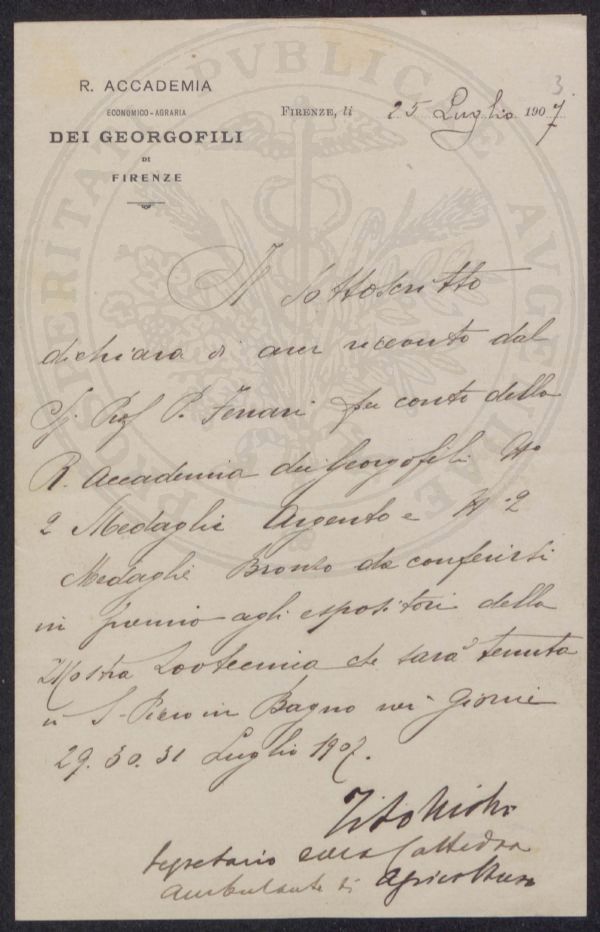 R. ACCADEMIA
ECONOMICO-AGRARIA
DEI GEORGOFILI
DI
FIRENZE
FIRENZE, li 25 Luglio 1907
3
PROSPERITATI PVBLICAE AVGENDAE
Il Sottoscritto
dichiara di aver ricevuto dal
Sig. Prof P. Ferrari per conto della
R. Accademia dei Georgofili No
2 Medaglie Argento e No 2
Medaglie Bronzo da conferirsi
in premio agli espositori della
Mostra Zootecnica che sarà tenuta
a S. Piero in Bagno nei giorni
29. 30. 31 Luglio 1907.
Tito
Segretario della Cattedra
Ambulante di Agricoltura